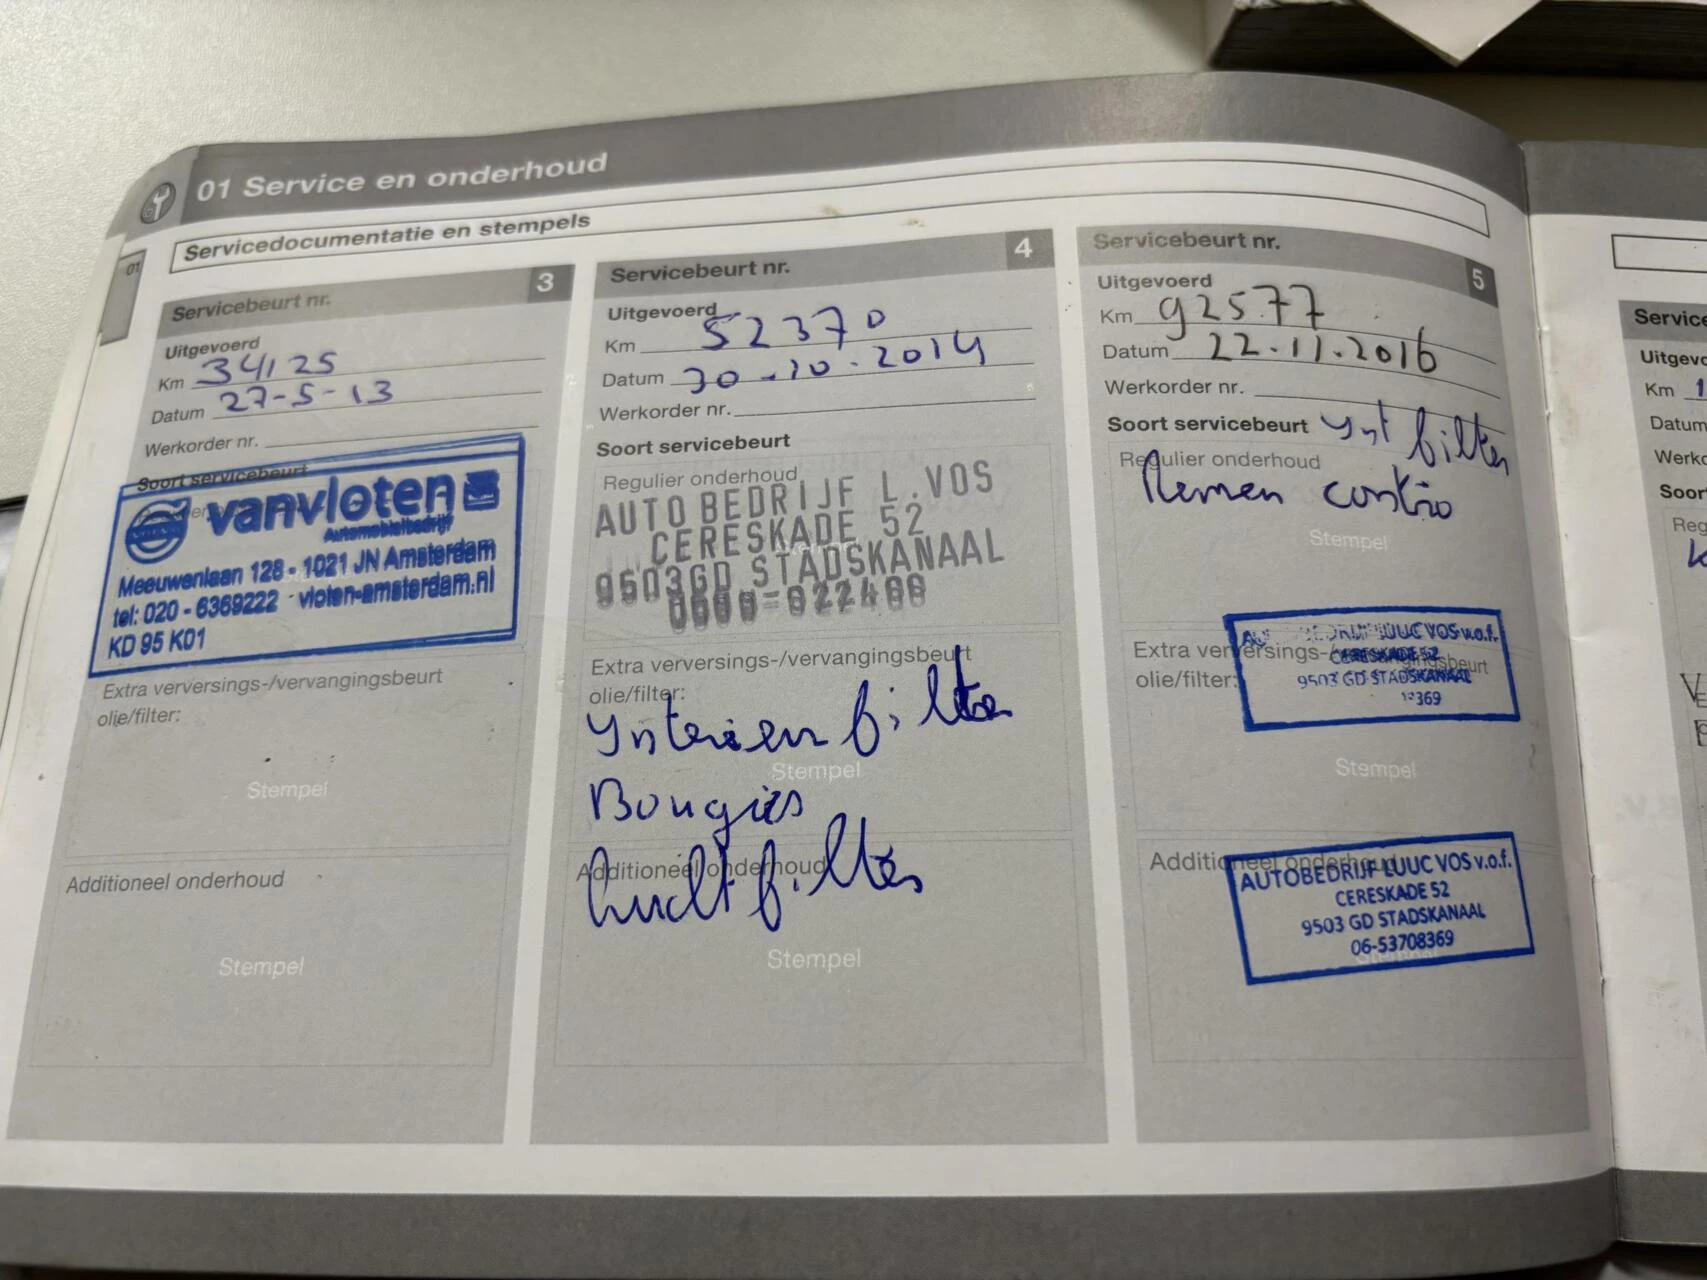 01 Service en onderhoud
Servicedocumentatie en stempels
01
Servicebeurt nr. 3
Uitgevoerd
Km 34125
Datum 27-5-13
Werkorder nr.
Soort servicebeurt
vanvloten
Automobielbedrijf
Meeuwenlaan 128 - 1021 JN Amsterdam
tel: 020 - 6369222 vloten-amsterdam.nl
KD 95 K01
Extra verversings-/vervangingsbeurt
olie/filter:
Stempel
Additioneel onderhoud
Stempel
Servicebeurt nr. 4
Uitgevoerd
Km 52370
Datum 30-10.2014
Werkorder nr.
Soort servicebeurt
Regulier onderhoud
AUTO BEDRIJF L.VOS
CERESKADE 52
9503GD STADSKANAAL
Extra verversings-/vervangingsbeurt
olie/filter:
Interieur filter
Stempel
Bougies
Additioneel onderhoud
Luchtfilter
Stempel
Servicebeurt nr. 5
Uitgevoerd
Km 92577
Datum 22.11.2016
Werkorder nr.
Soort servicebeurt Int filter
Regulier onderhoud
Remen
Stempel
Extra verversings-/vervangingsbeurt
olie/filter:
LUUC VOS v.o.f.
CERESKADE 52
9503 GD STADSKANAAL
369
Stempel
Additioneel onderhoud
AUTOBEDRIJF LUUC VOS v.o.f.
CERESKADE 52
9503 GD STADSKANAAL
06-53708369
Stempel
Service
Uitgevo
Km 1
Datum
Werko
Soor
Reg